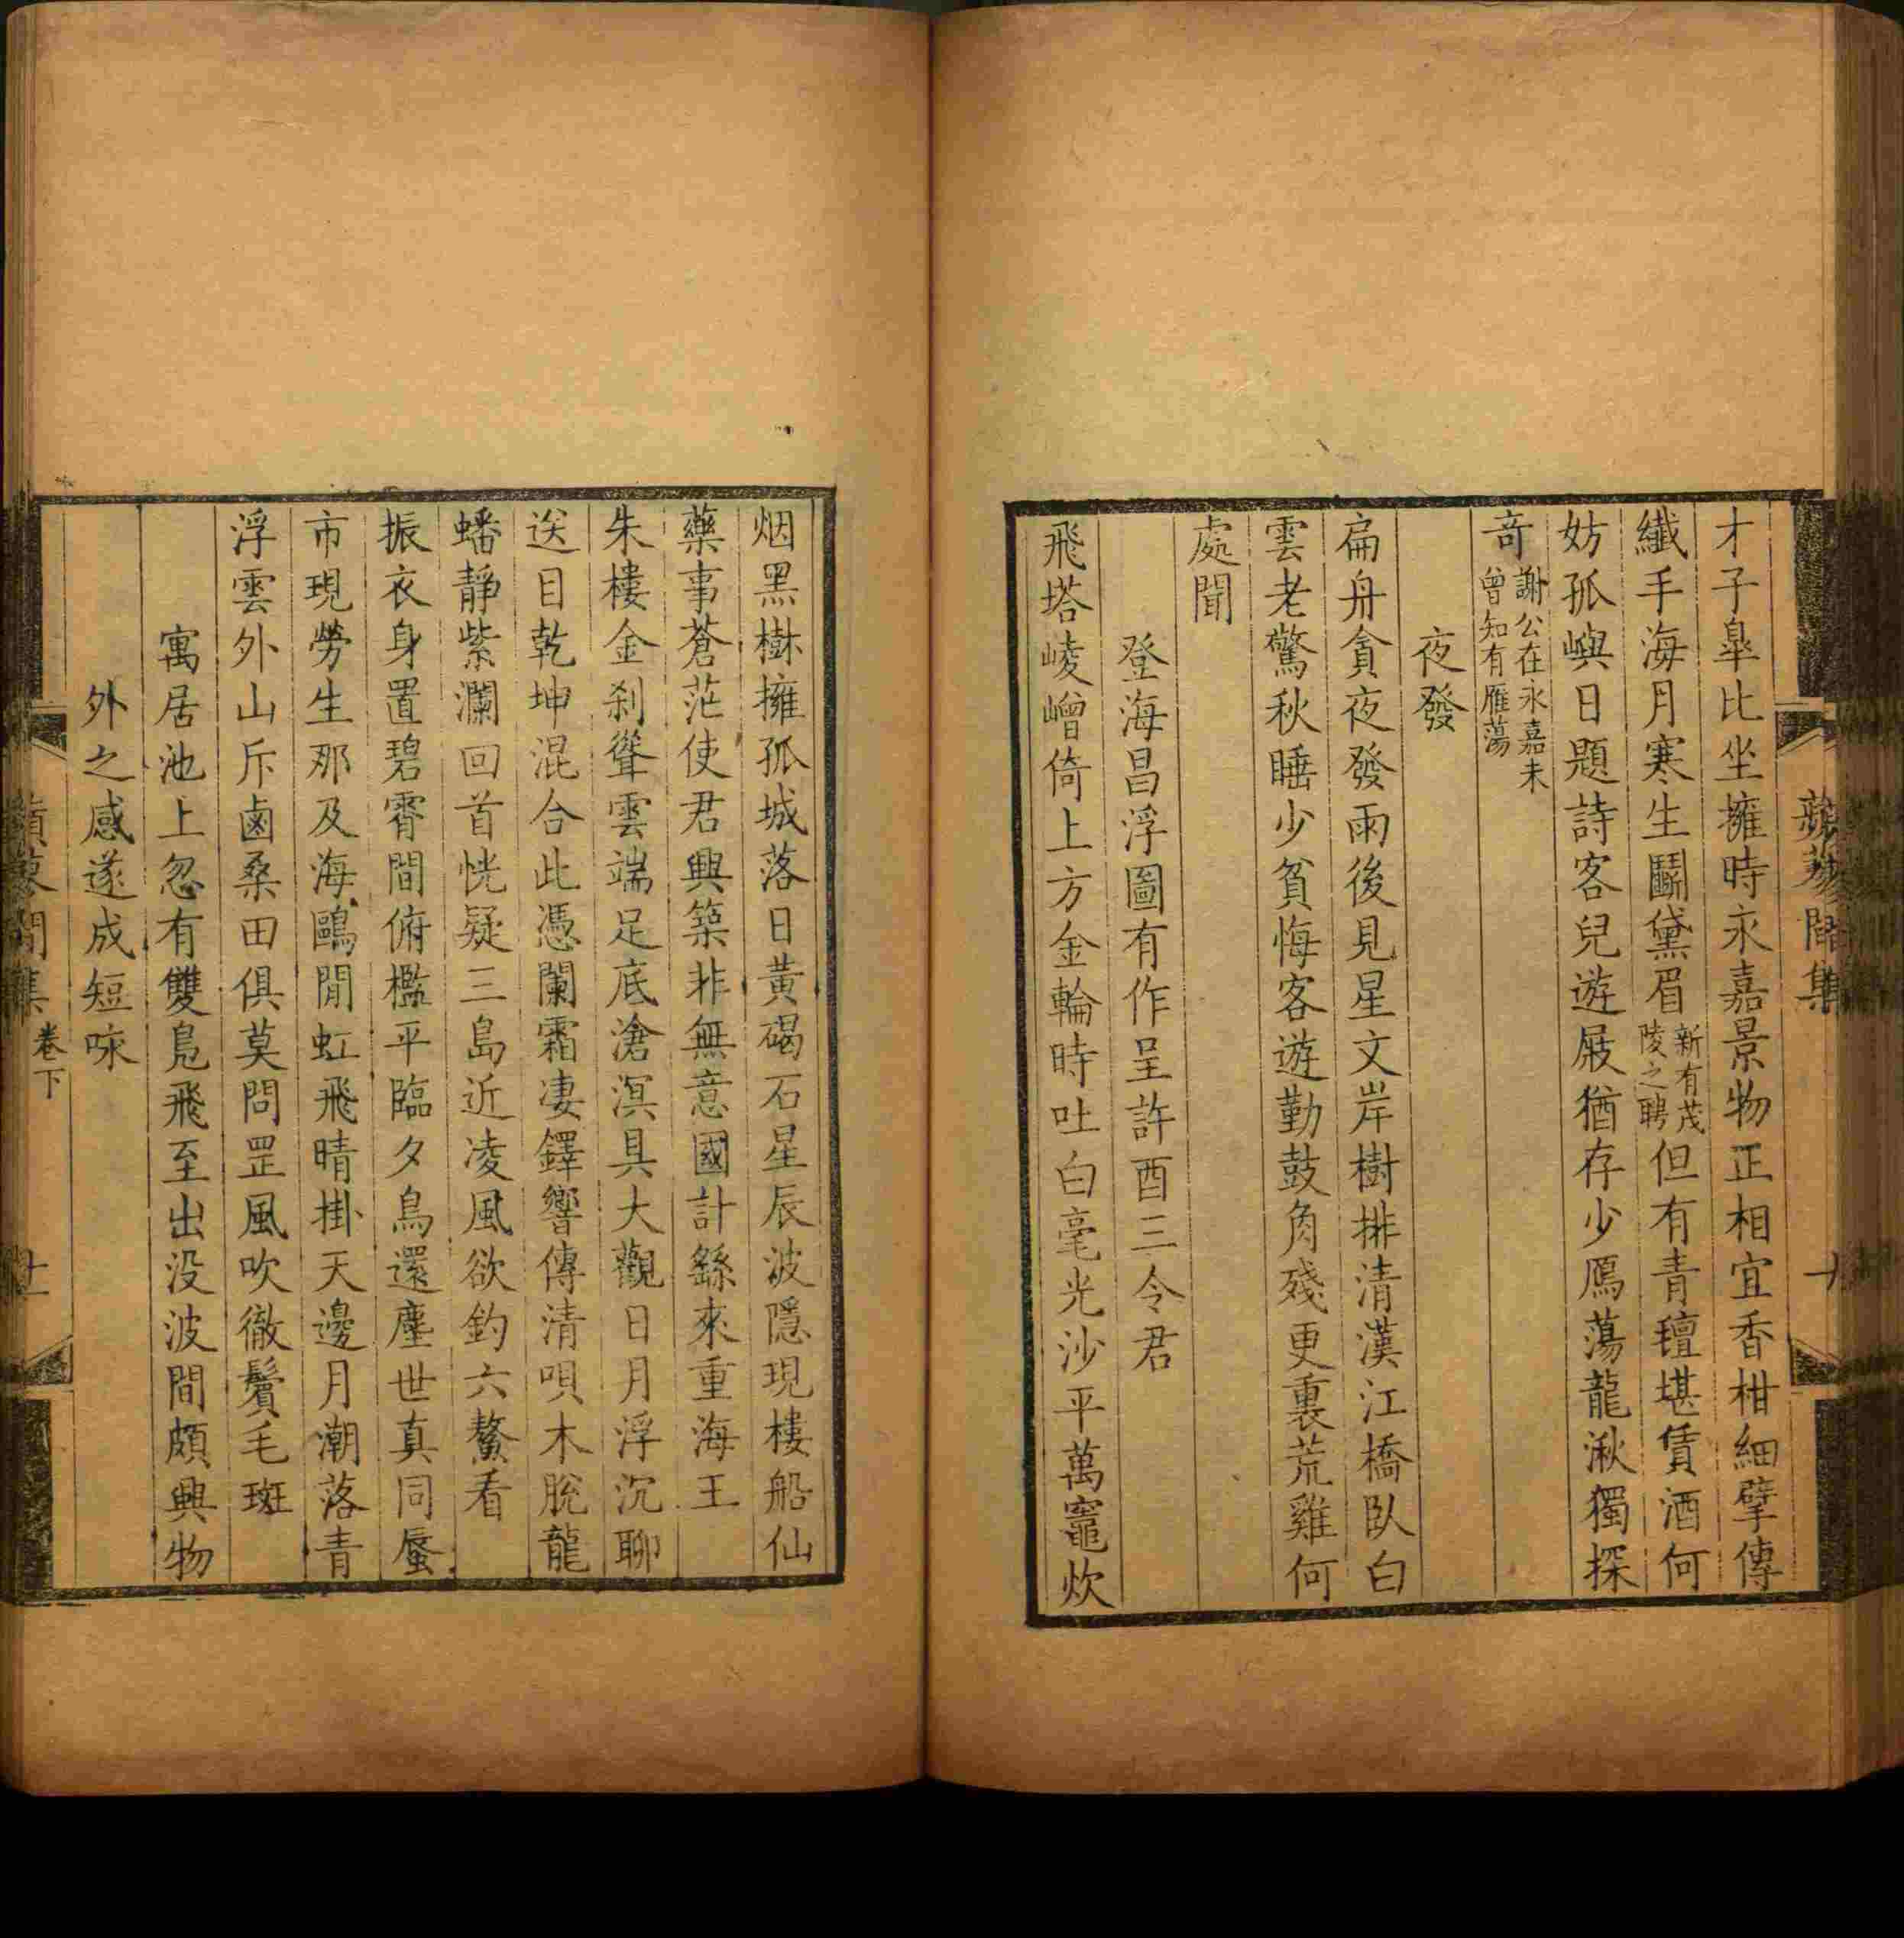 才子皐比坐擁時永嘉景物正相宜香柑細擘傳
纖手海月寒生鬭黛眉新有茂陵之聘但有青氊堪賃酒何
妨孤嶼日題詩客兒遊屐猶存少鴈蕩龍湫獨探
奇謝公在永嘉未曾知有雁蕩
夜發
扁舟貪夜發雨後見星文岸樹排清漢江橋臥白
雲老驚秋睡少貧悔客遊勤鼓角殘更裏荒雞何
處聞
登海昌浮圖有作呈許酉三令君
飛塔崚嶒倚上方金輪時吐白毫光沙平萬竈炊
烟黑樹擁孤城落日黃碣石星辰波隱現樓船仙
藥事蒼茫使君興築非無意國計繇來重海王
朱樓金刹聳雲端足底滄溟具大觀日月浮沉聊
送目乾坤混合此憑闌霜凄鐸響傳清唄木脫龍
蟠靜紫瀾回首恍疑三島近凌風欲釣六鰲看
振衣身置碧霄間俯檻平臨夕鳥還塵世真同蜃
市現勞生那及海鷗閒虹飛晴掛天邊月潮落青
浮雲外山斥鹵桑田俱莫問罡風吹徹鬢毛斑
寓居池上忽有雙鳧飛至出没波間頗興物
外之感遂成短咏
卷下